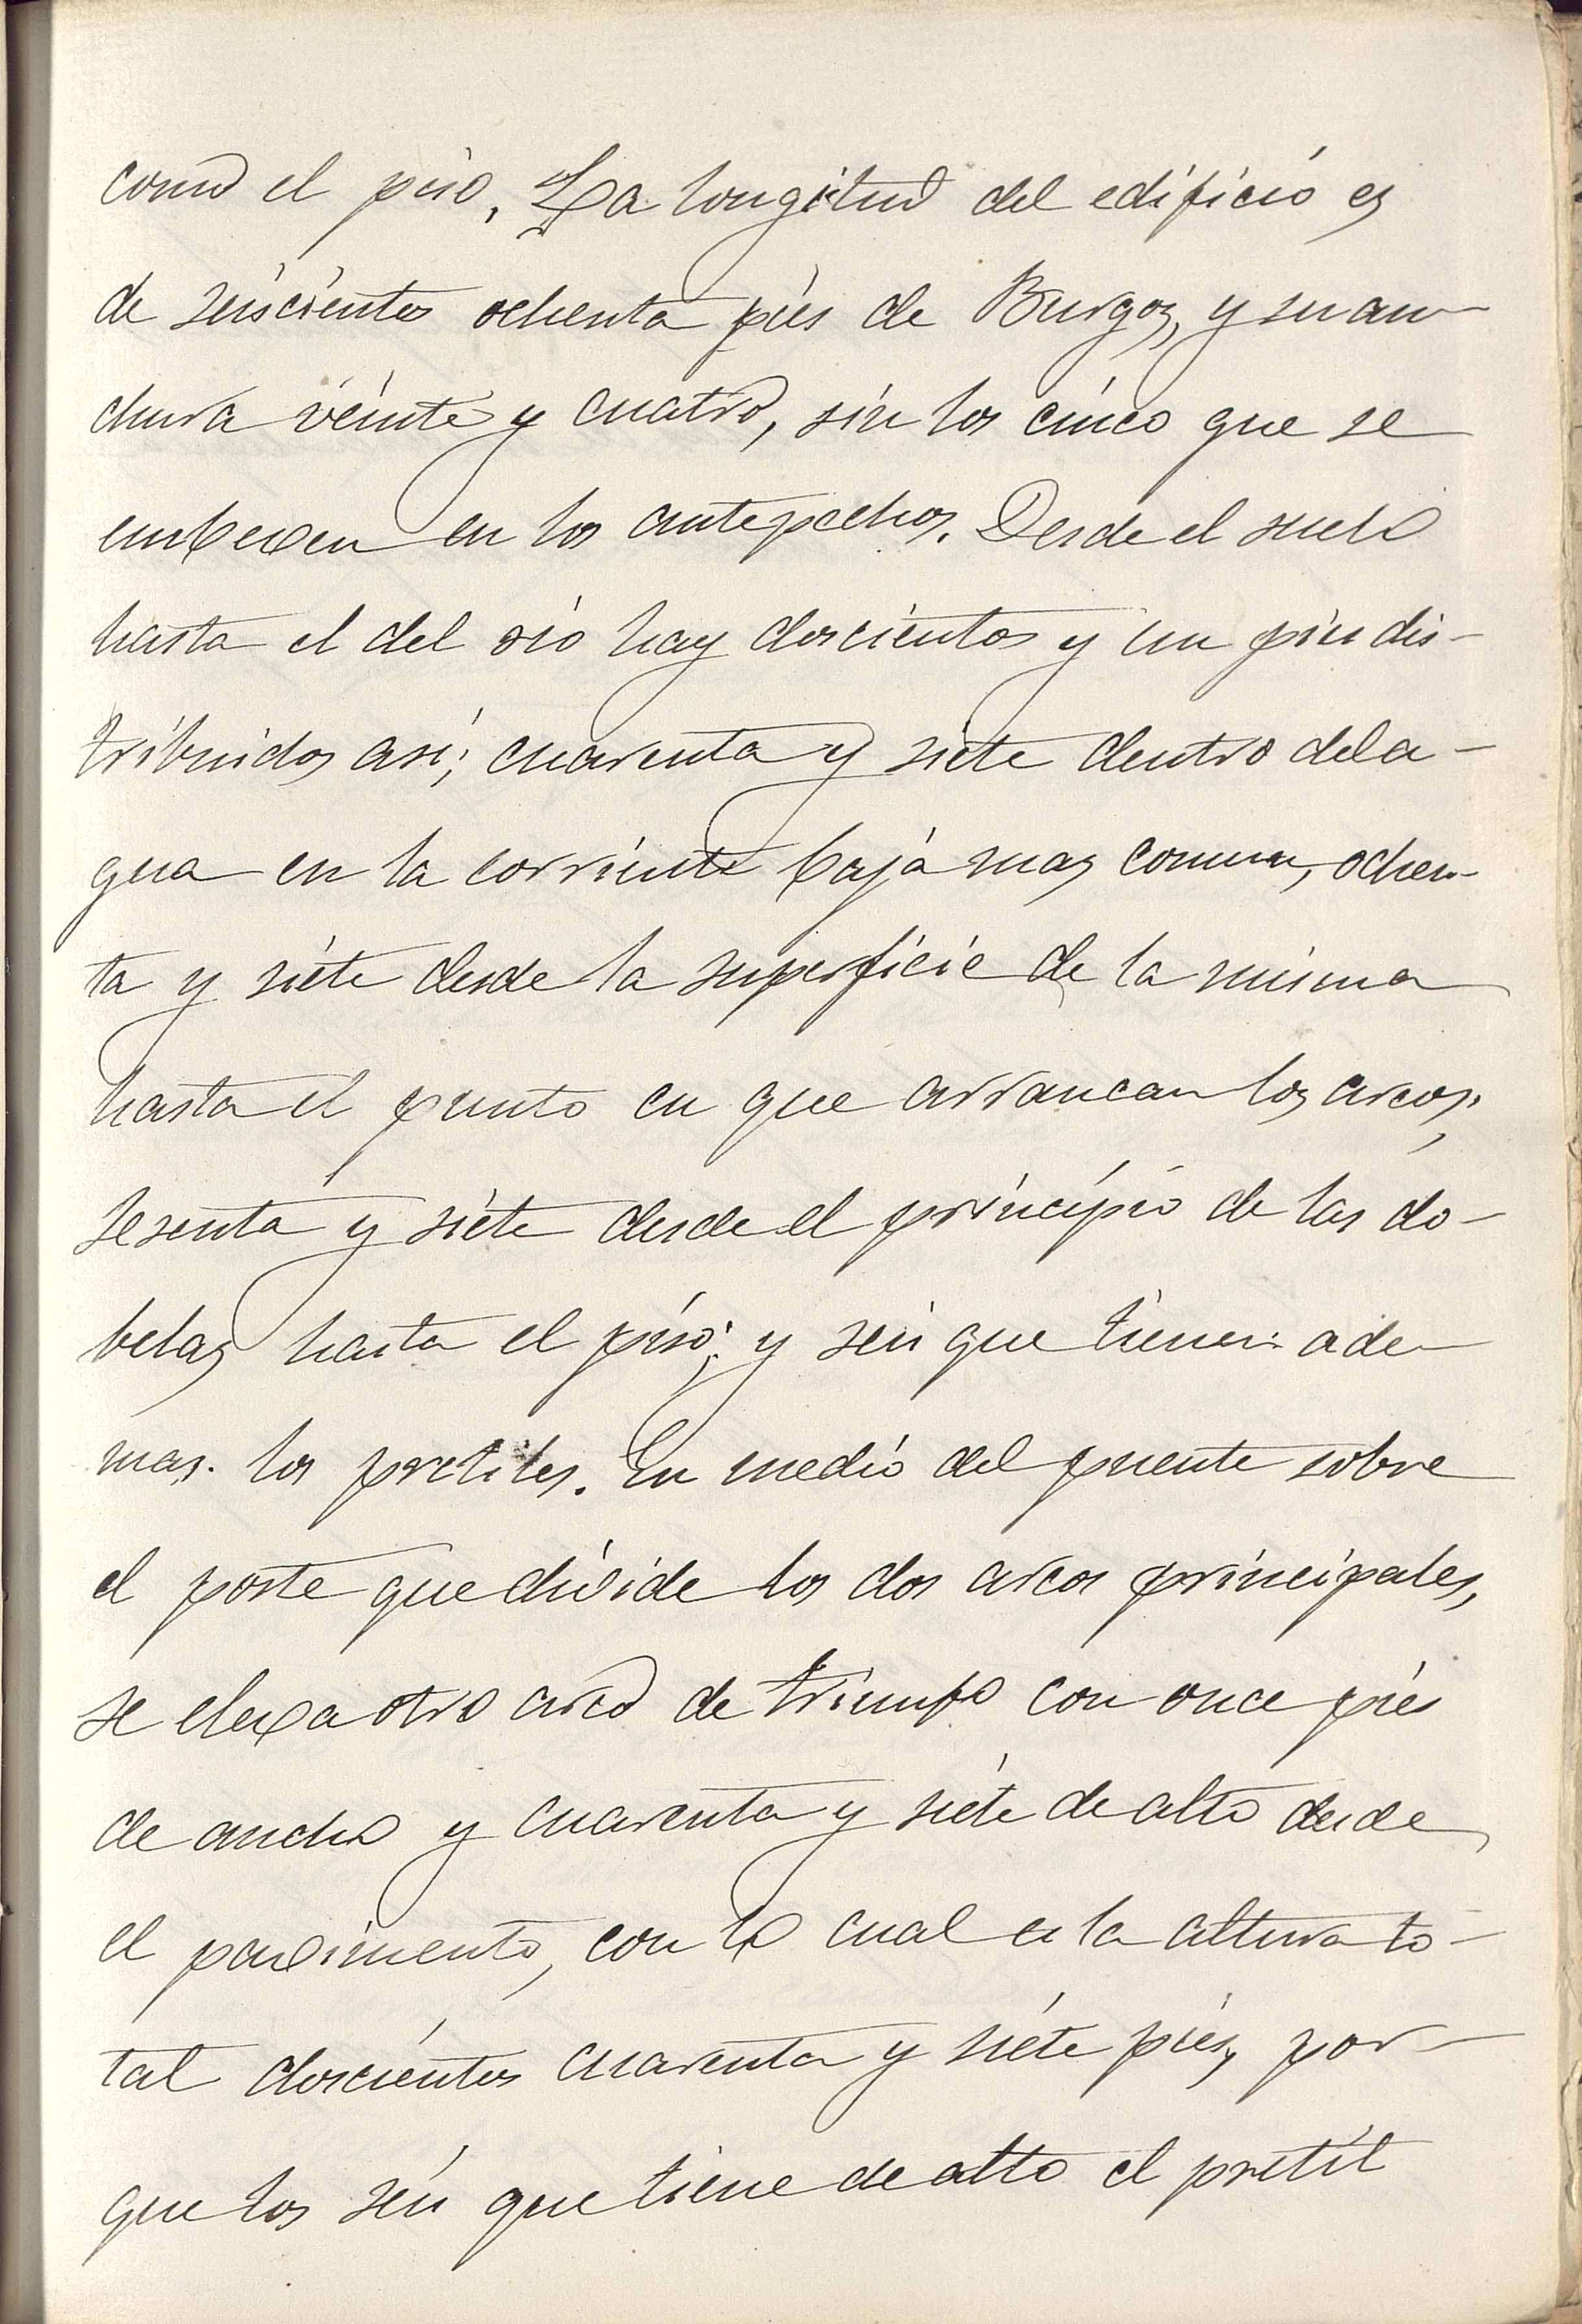 como el piso. La longitud del edificio es
de seiscientos ochenta pies de Burgos, y su an-
chura veinte y cuatro, sin los cinco que se
embeven en los antepechos. Desde el suelo
hasta el del rio hay doscientos y un pies dis-
tribuidos asi; cuarenta y siete dentro del a-
gua en la corriente baja mas comun, ochen-
ta y siete desde la superficie de la misma
hasta el punto en que arrancan los arcos;
sesenta y siete desde el principio de las do-
belas hasta el piso; y seis que tienen ade-
mas los pretiles. En medio del puente sobre
el poste que divide los dos arcos principales,
se eleva otro arco de triunfo con once pies
de ancho y cuarenta y siete de alto desde
el pavimento, con lo cual es la altura to-
tal doscientos cuarenta y siete pies, por-
que los seis que tiene de alto el pretil